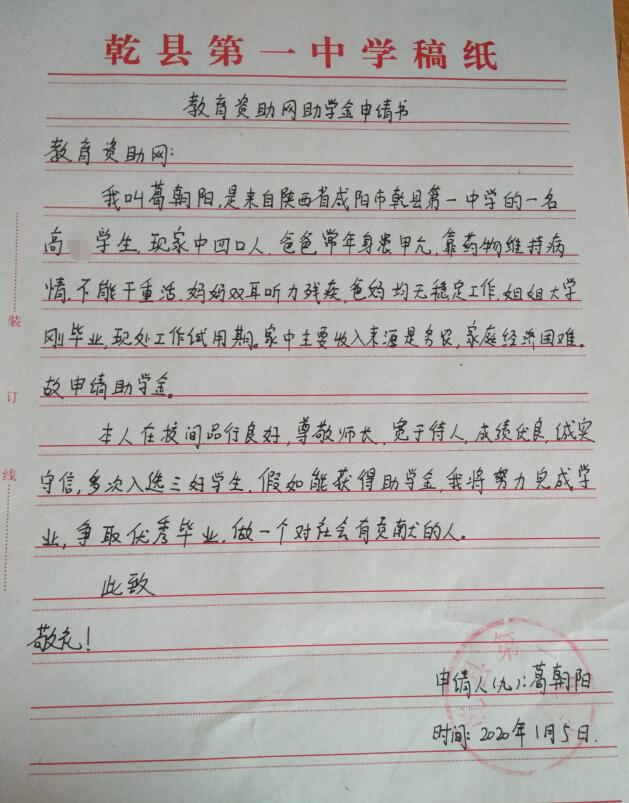 乾县第一中学稿纸
教育资助网助学金申请书
教育资助网:
我叫葛朝阳,是来自陕西省咸阳市乾县第一中学的一名
高 学生,现家中四口人,爸爸常年身患甲亢,靠药物维持病
情,不能干重活,妈妈双耳听力残疾,爸妈均无稳定工作,姐姐大学
刚毕业,现处工作试用期。家中主要收入来源是务农,家庭经济困难。
故申请助学金。
本人在校间品行良好,尊敬师长,宽于待人,成绩优良,诚实
守信,多次入选三好学生,假如能获得助学金,我将努力完成学
业,争取优秀毕业,做一个对社会有贡献的人。
此致
敬礼!
申请人(九):葛朝阳
时间:2020年1月5日.
装
订
线
第一